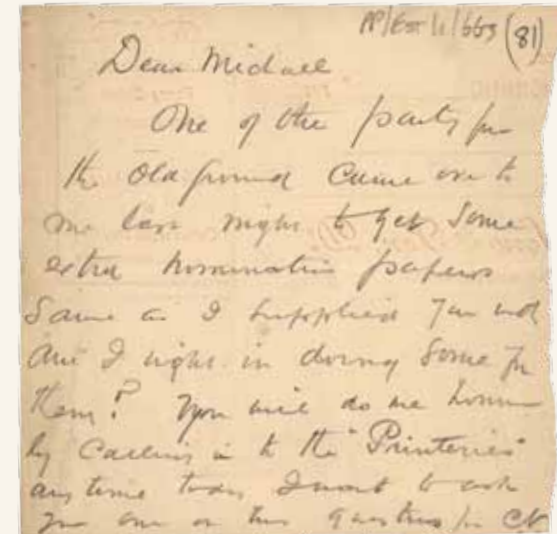 PP/Est/1/663 (81)
Dear Michael
One of the party for
the Old ground Came over to
me last night to get Some
extra nomination papers
Same as I supplied you with
Am I right in doing Some for
them? You will do me honour
by Calling in to the "Printeries"
any time today I want to ask
you one or two questions